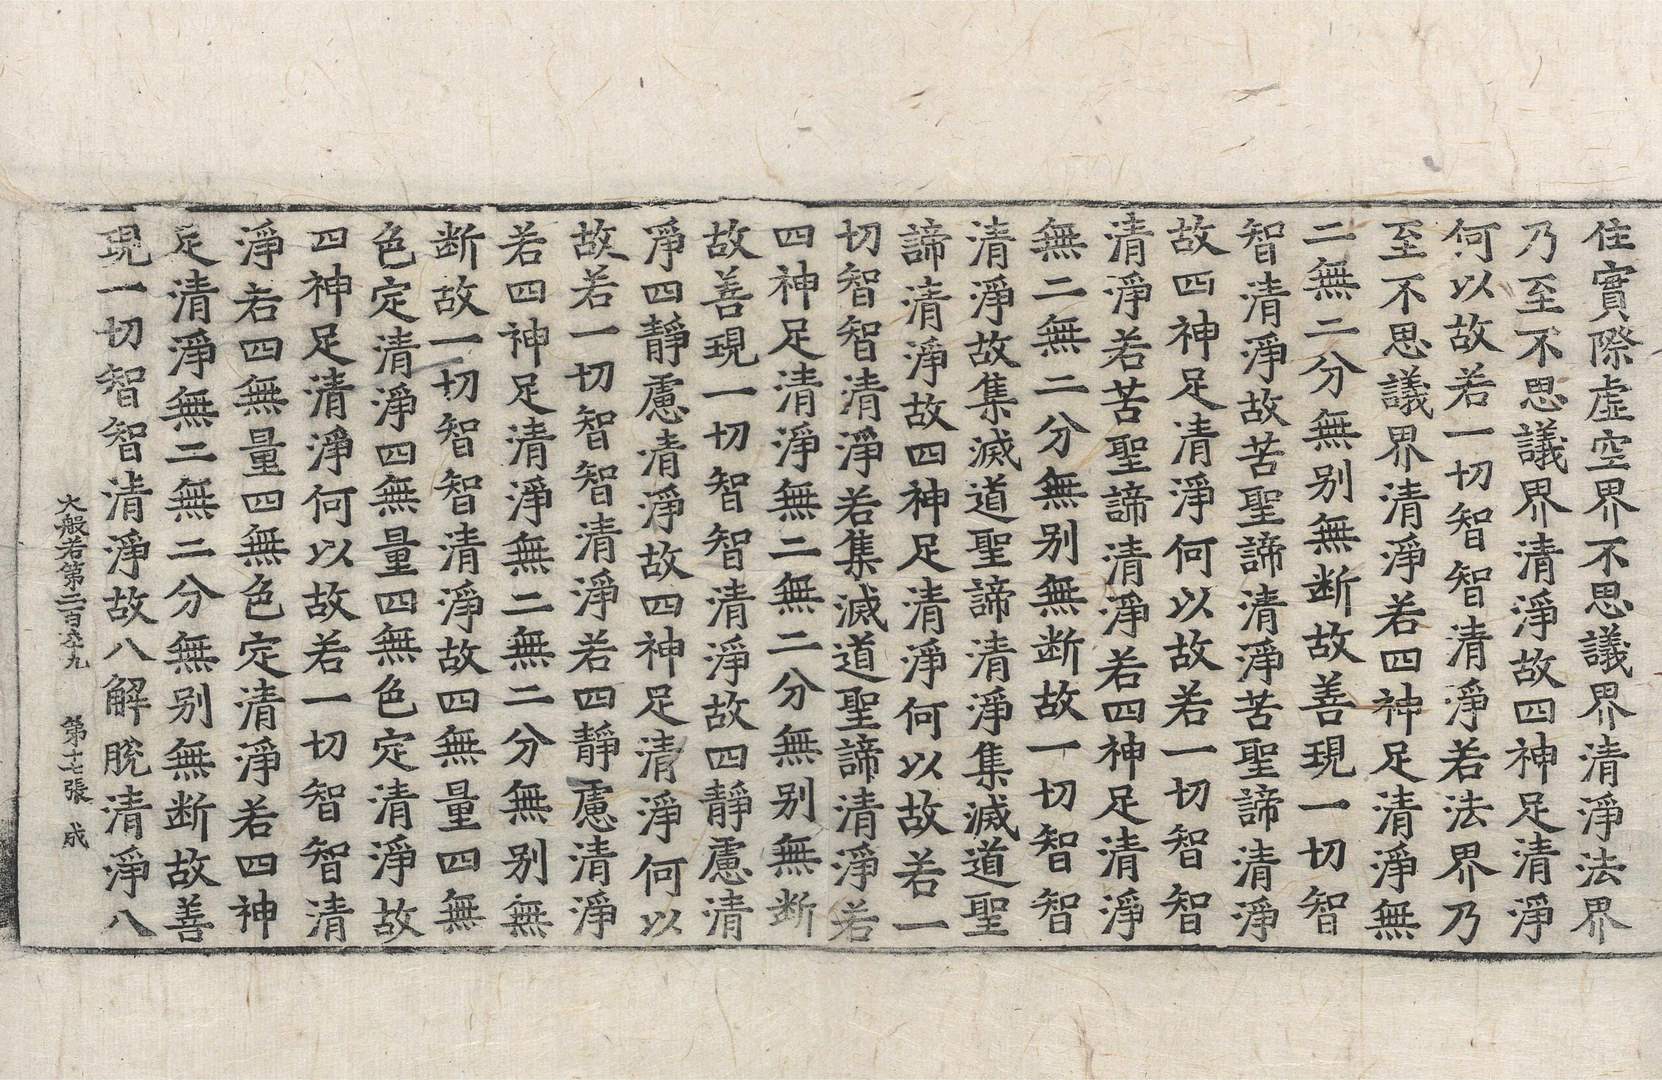 住實際虛空界不思議界清淨法界
乃至不思議界清淨故四神足清淨
何以故若一切智智清淨若法界乃
至不思議界清淨若四神足清淨無
二無二分無别無断故善現一切智
智清淨故苦聖諦清淨苦聖諦清淨
故四神足清淨何以故若一切智智
清淨若苦聖諦清淨若四神足清淨
無二無二分無别無断故一切智智
清淨故集滅道聖諦清淨集滅道聖
諦清淨故四神足清淨何以故若一
切智智清淨若集滅道聖諦清淨若
四神足清淨無二無二分無别無断
故善現一切智智清淨故四靜慮清
淨四靜慮清淨故四神足清淨何以
故若一切智智清淨若四靜慮清淨
若四神足清淨無二無二分無别無
断故一切智智清淨故四無量四無
色定清淨四無量四無色定清淨故
四神足清淨何以故若一切智智清
淨若四無量四無色定清淨若四神
足清淨無二無二分無别無断故善
現一切智智清淨故八解脫清淨八
大般若第二百五十九 第十七張 成